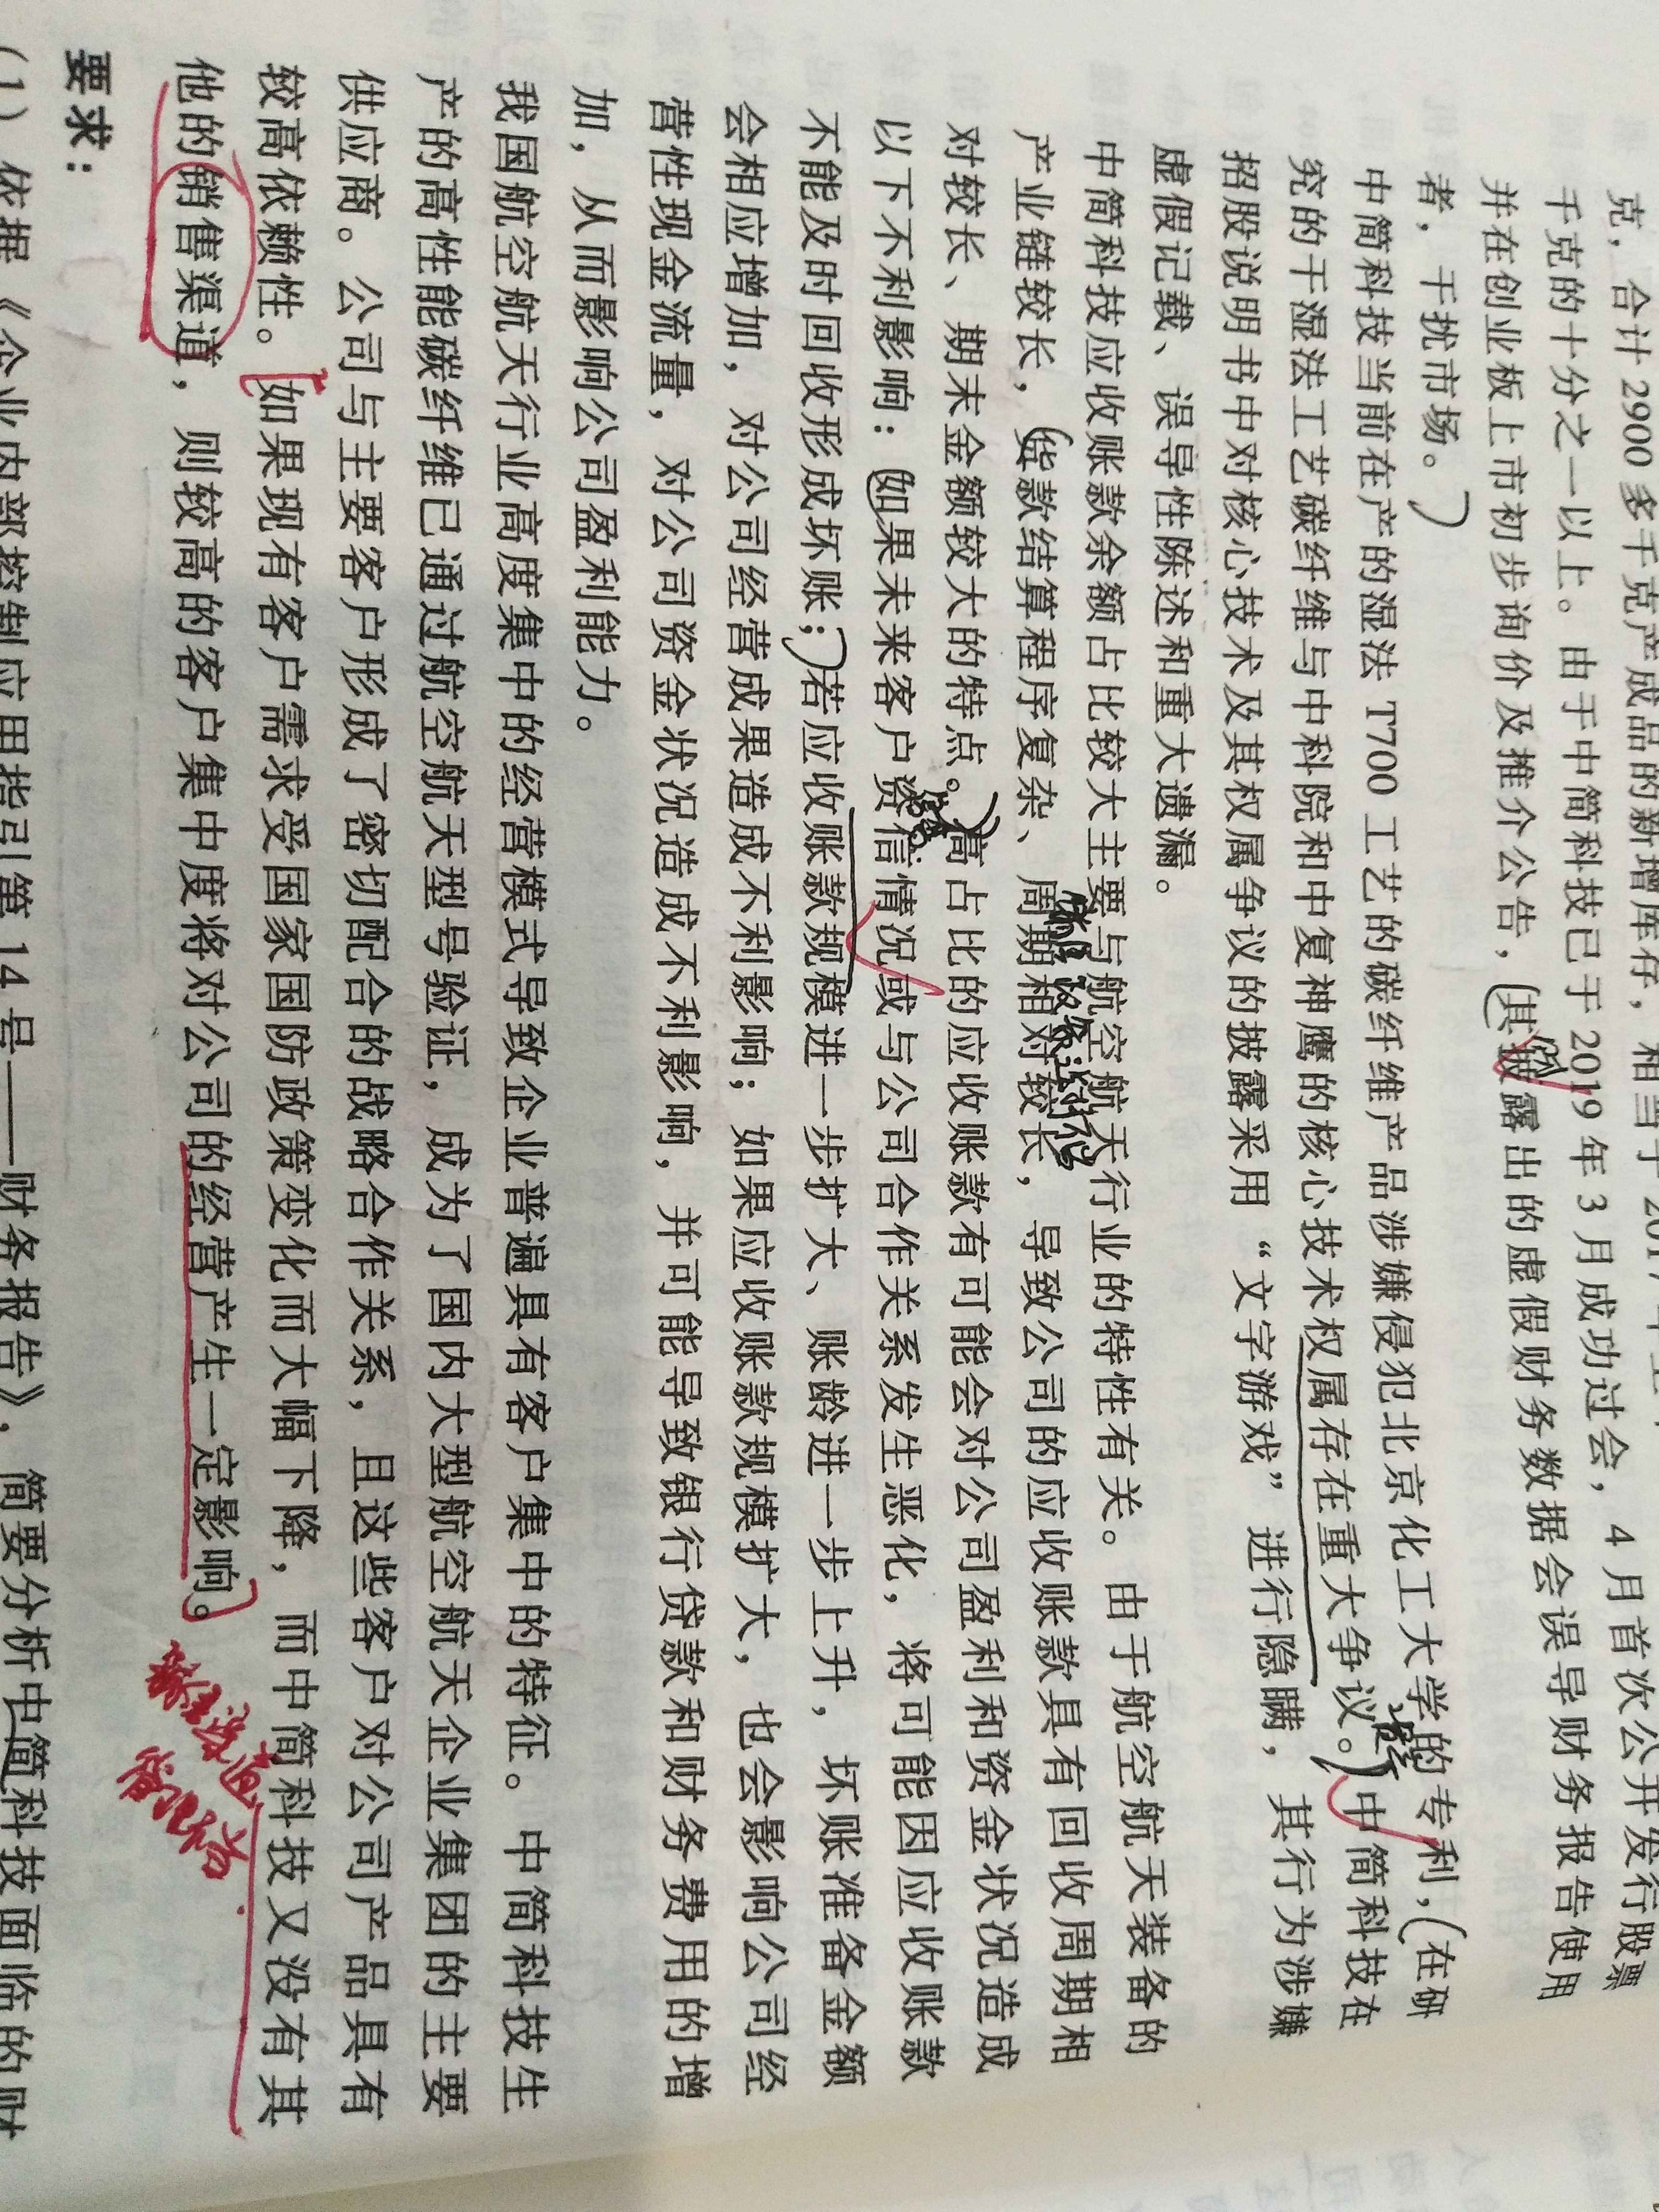 克，合计 2900 多千克产成品的新增库存，相当于 2017 年
千克的十分之一以上。由于中简科技已于 2019 年 3 月成功过会，4 月首次公开发行股票
并在创业板上市初步询价及推介公告，其披露出的虚假财务数据会误导财务报告使用
者，干扰市场。
中简科技当前在产的湿法 T700 工艺的碳纤维产品涉嫌侵犯北京化工大学的专利，在研
究的干湿法工艺碳纤维与中科院和中复神鹰的核心技术权属存在重大争议。中简科技在
招股说明书中对核心技术及其权属争议的披露采用“文字游戏”进行隐瞒，其行为涉嫌
虚假记载、误导性陈述和重大遗漏。
中简科技应收账款余额占比较大主要与航空航天行业的特性有关。由于航空航天装备的
产业链较长，货款结算程序复杂、周期相对较长，导致公司的应收账款具有回收周期相
对较长、期末金额较大的特点。高占比的应收账款有可能会对公司盈利和资金状况造成
以下不利影响：如果未来客户资信情况或与公司合作关系发生恶化，将可能因应收账款
不能及时回收形成坏账；若应收账款规模进一步扩大、账龄进一步上升，坏账准备金额
会相应增加，对公司经营成果造成不利影响；如果应收账款规模扩大，也会影响公司经
营性现金流量，对公司资金状况造成不利影响，并可能导致银行贷款和财务费用的增
加，从而影响公司盈利能力。
我国航空航天行业高度集中的经营模式导致企业普遍具有客户集中的特征。中简科技生
产的高性能碳纤维已通过航空航天型号验证，成为了国内大型航空航天企业集团的主要
供应商。公司与主要客户形成了密切配合的战略合作关系，且这些客户对公司产品具有
较高依赖性。如果现有客户需求受国家国防政策变化而大幅下降，而中简科技又没有其
他的销售渠道，则较高的客户集中度将对公司的经营产生一定影响。
要求：
（1）依据《企业内部控制应用指引第 14 号——财务报告》，简要分析中简科技面临的财